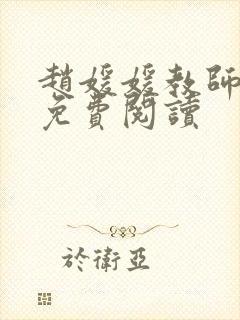 趙媛媛教師
免費閱讀
於衛亞